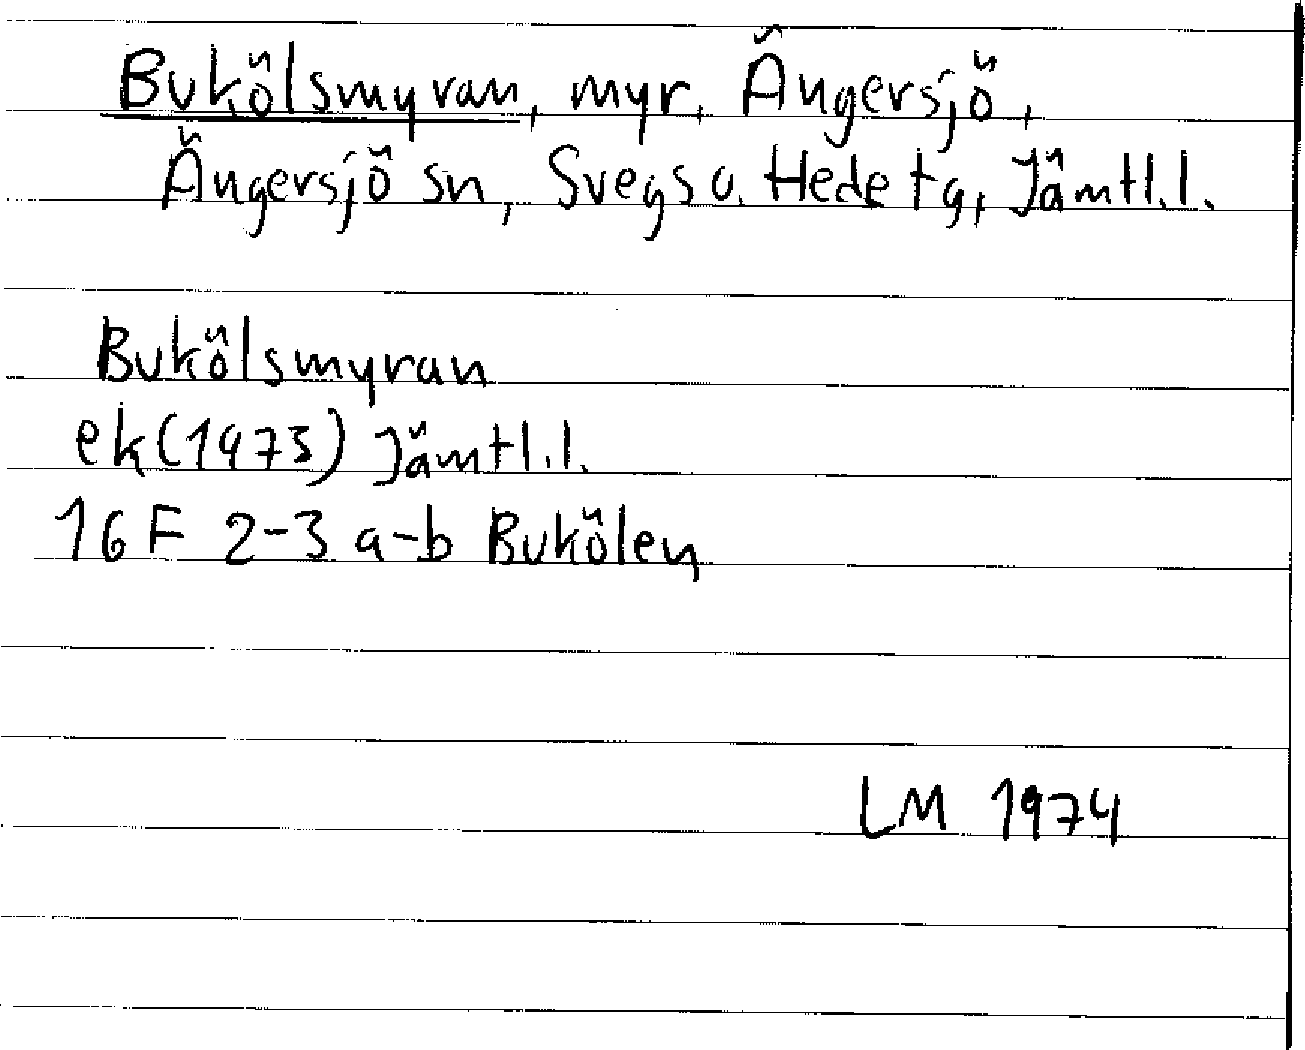 Bukölsmyran, myr, Ängersjö,
Ängersjö sn, Svegs o. Hede tg, Jämtl.l.
Bukölsmyran
ek(1973) Jämtl.l.
16 F 2-3 a-b Bukölen
LM 1974